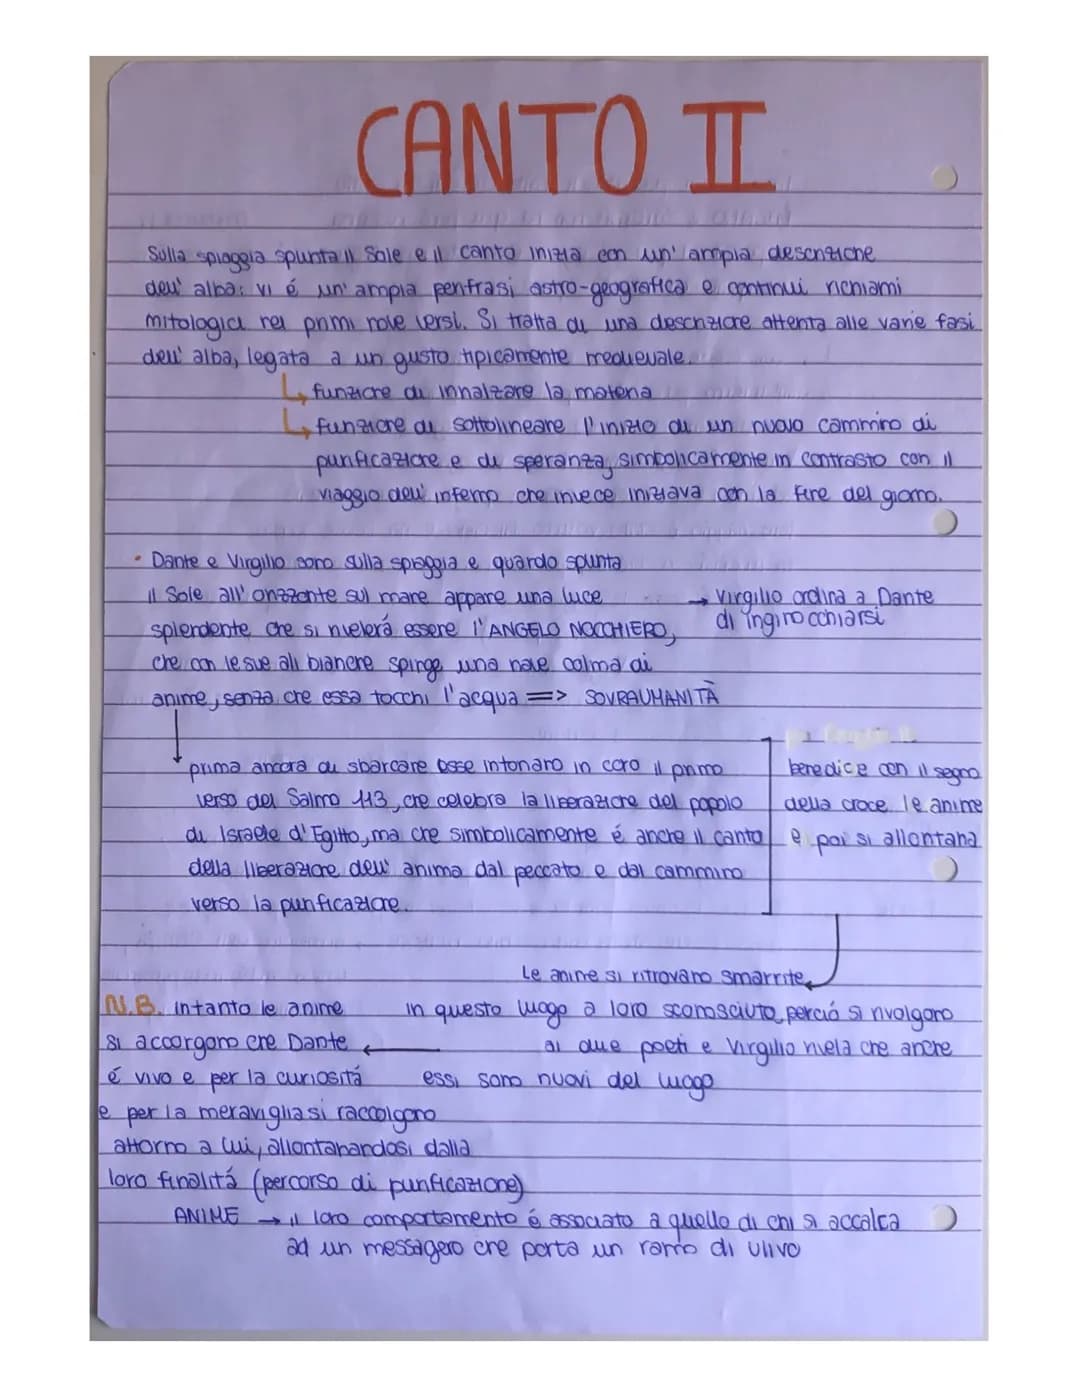 CANTO II
Sulla spiaggia spunta il Sole e il canto inizia con un' ampia descrizione
dell' alba: vi é un' ampia perifrasi astro-geografica e continui richiami
mitologici nei primi nove versi. Si tratta di una descrizione attenta alle varie fasi
dell' alba, legata a un gusto tipicamente medievale.
↳ funzione di innalzare la materia
↳ funzione di sottolineare l'inizio di un nuovo cammino di
purificazione e di speranza, simbolicamente in contrasto con il
viaggio dell' inferno che invece iniziava con la fine del giorno.
• Dante e Virgilio sono sulla spiaggia e quando spunta
il Sole all' orizzonte sul mare appare una luce
→ Virgilio ordina a Dante
di inginocchiarsi
splendente che si rivelerá essere l'ANGELO NOCCHIERO,
che con le sue ali bianche spinge una nave colma di
anime, senza che essa tocchi l'acqua => SOVRAUMANITÀ
prima ancora di sbarcare esse intonano in coro il primo
verso del Salmo 113, che celebra la liberazione del popolo
di Israele d'Egitto, ma che simbolicamente é anche il canto
della liberazione dell' anima dal peccato e dal cammino
verso la purificazione.
benedice con il segno
della croce le anime
e poi si allontana
Le anime si ritrovano smarrite
in questo luogo a loro sconosciuto, perció si rivolgono
ai due poeti e Virgilio rivela che anche
essi sono nuovi del luogo
N.B. intanto le anime
si accorgono che Dante
é vivo e per la curiositá
e per la meraviglia si raccolgono
attorno a lui, allontanandosi dalla
loro finalitá (percorso di purificazione)
ANIME → il loro comportamento é associato a quello di chi si accalca
ad un messagero che porta un ramo di ulivo